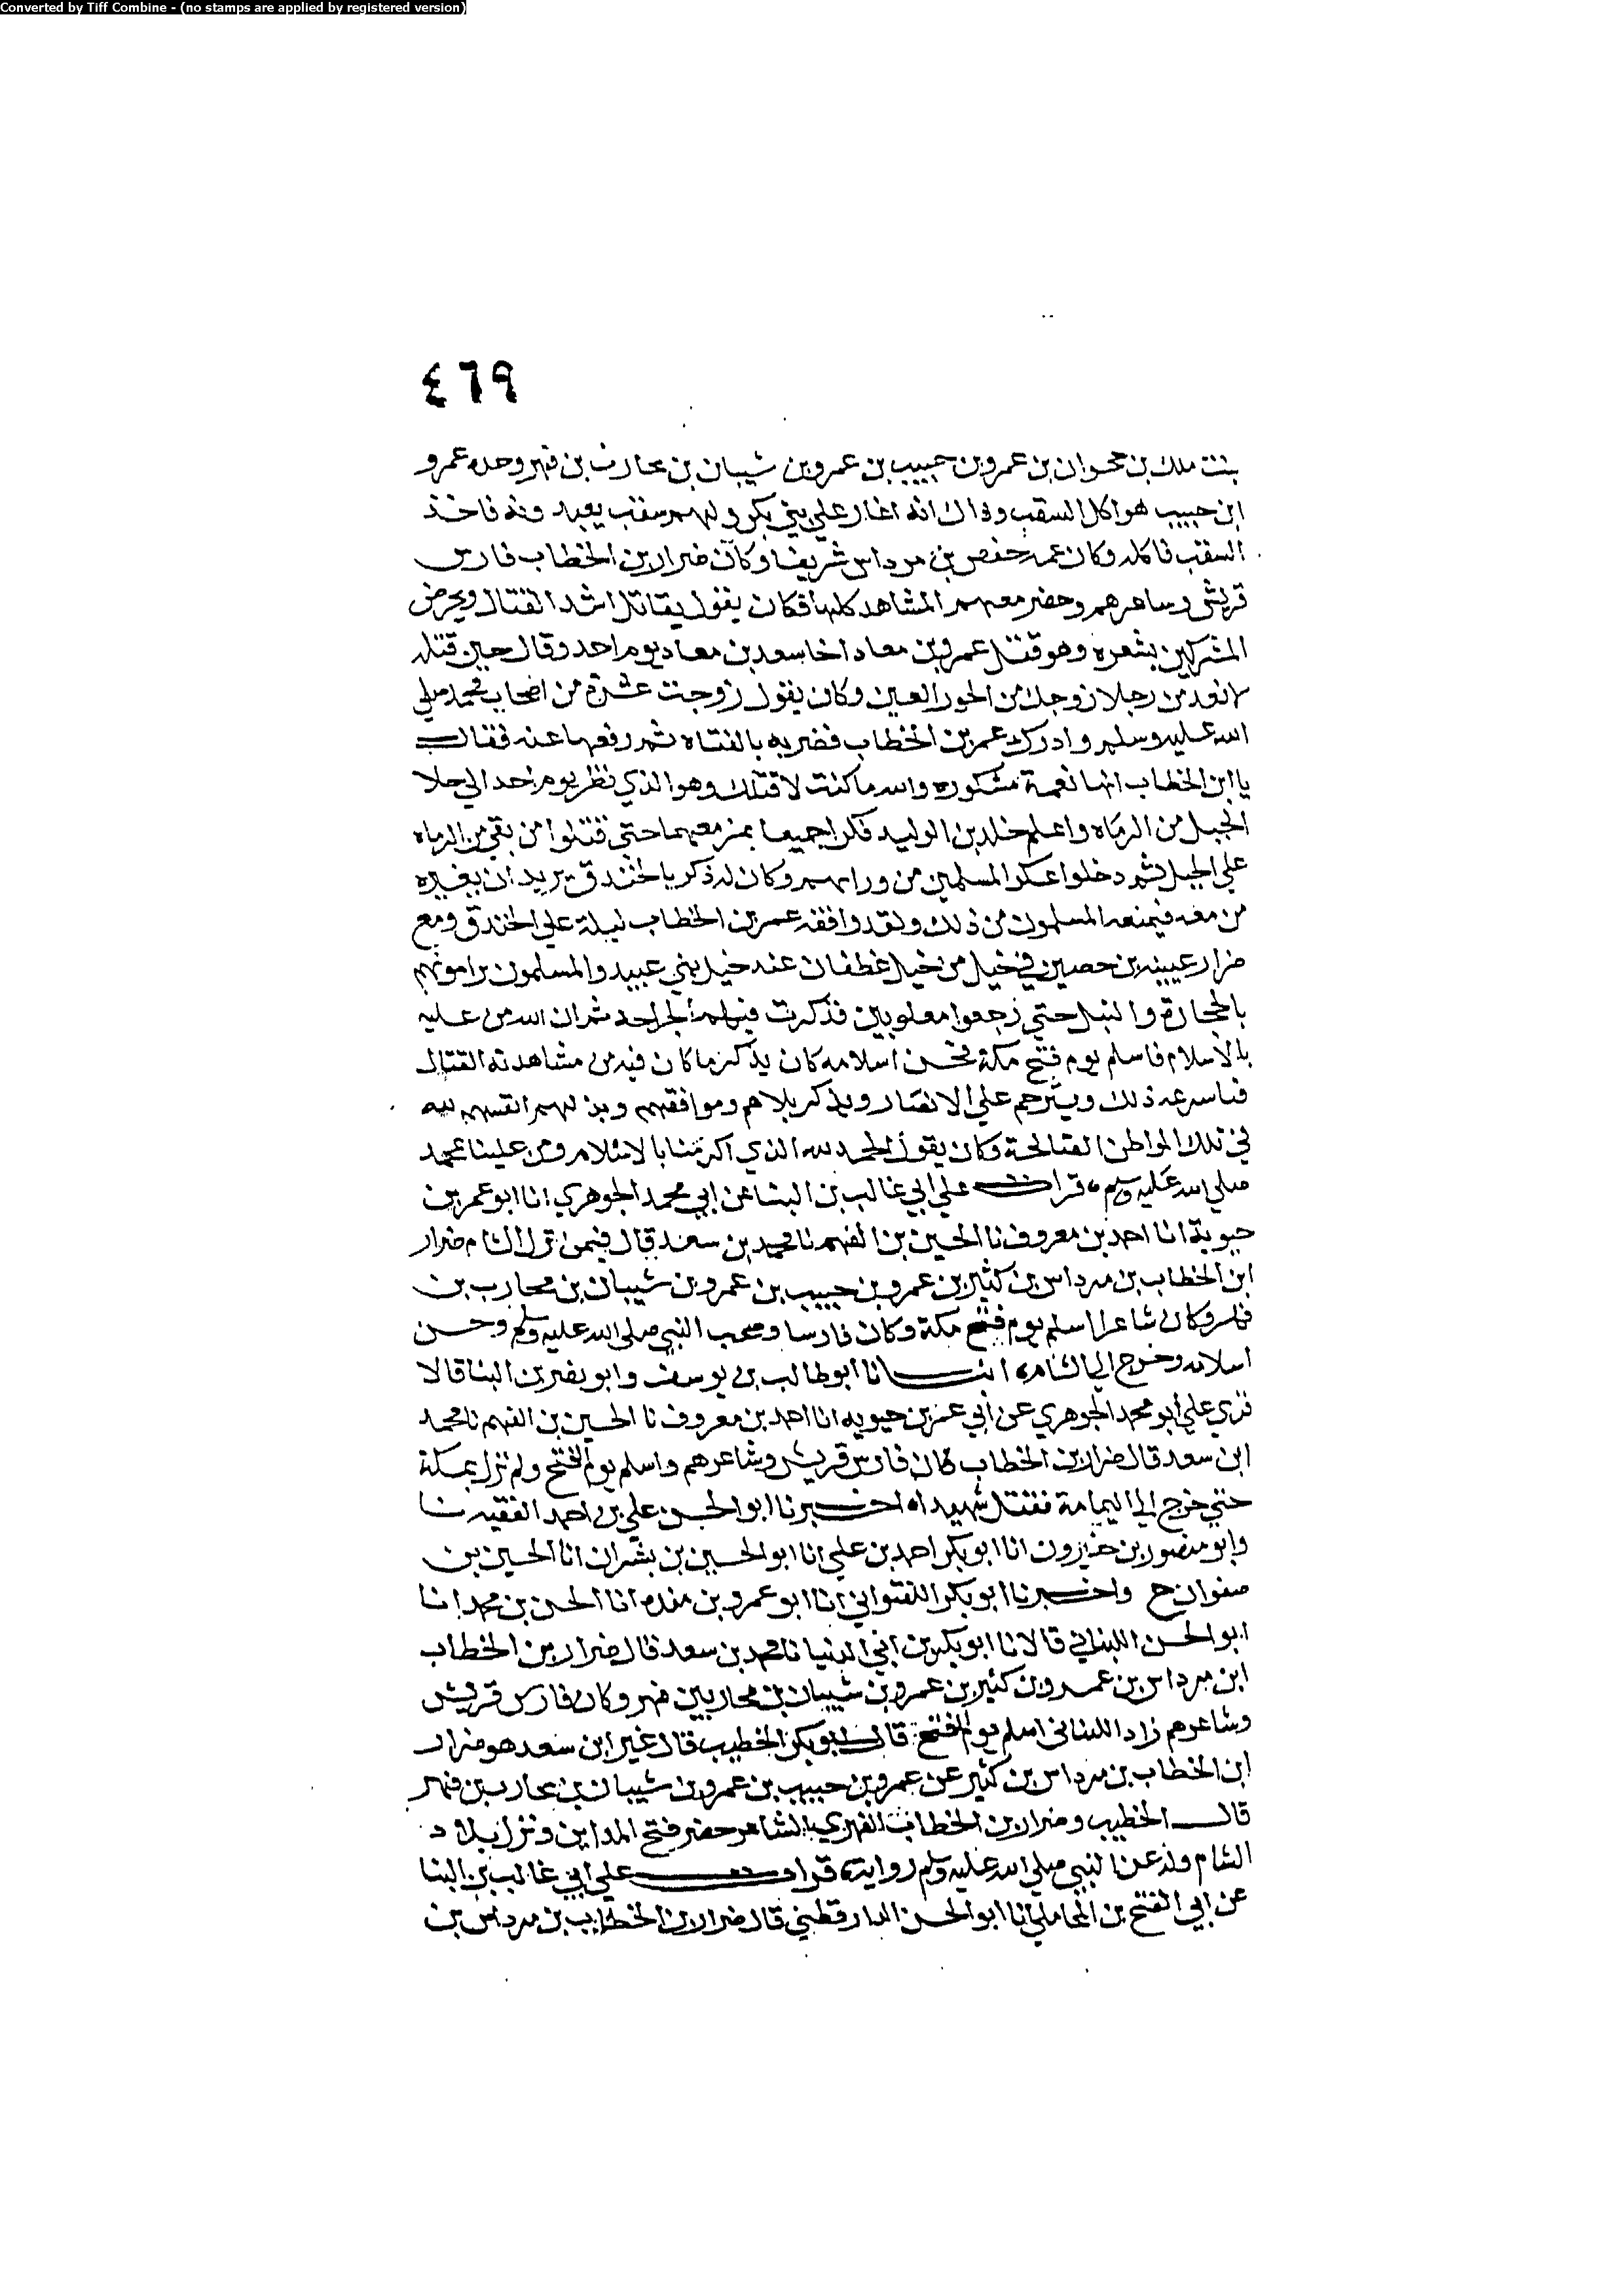 Converted by Tiff Combine - (no stamps are applied by registered version)
٤٦٩
بنت ملك بن جحوان بن عمرو بن حبيب بن عمرو بن شيبان بن محارب بن فهر وجده عمرو
ابن حبيب هو اكل السقب وذاك انه اغار علي بني بكر ولهم سقب يعبدونه فاخذ
السقب فاكله وكان عمه حفص بن مرداس شريفا وكان ضرار بن الخطاب فارس
قريش وساعرهم وحضر معهم المشاهد كلها فكان يقول يقاتل اشد القتال ويحرض
المشركين بشعره وهو قتل عمرو بن معاد اخا سعد بن معاد يوم احد وقال حين قتله
لا تعد من رجلا زوجك من الحور العين وكان يقول زوجت عشرة من اصحاب محمد صلي
الله عليه وسلم وادرك عمر بن الخطاب فضربه بالقناه ثم رفعها عنه فقال
يا ابن الخطاب انها نعمة مشكوره والله ما كنت لاقتلك وهو الذي نظر يوم احد الي خلا
الجبل من الرماه واعلم خلد بن الوليد فكرا جميعا بمن معهما حتي قتلوا من بقي من الرماه
علي الجبل ثم دخلوا عسكر المسلمين من ورايهم وكان له ذكر بالخندق يريد ان يعبره
من معه فيمنعه المسلمون من ذلك ولقد واقفه عمر بن الخطاب ليلة علي الخندق ومع
ضرار عيينه بن حصين في خيل من خيل غطفان عند خيل بني عبيد والمسلمون يرامونهم
بالحجارة والنبل حتي رجعوا مغلوبين فذكرت فيهم الجراحه ثم ان الله من عليه
بالاسلام فاسلم يوم فتح مكة فحسن اسلامه كان يذكر ما كان فيه من مشاهدته القتال
ذلك ويترحم علي الانصار ويذكر بلاهم وموافقهم وبذلهم انفسهم لله
في تلك المواطن الصالحة وكان يقول الحمد لله الذي اكرمنا بالاسلام ومن علينا بمحمد
صلي الله عليه وسلم قرات علي ابي غالب بن البنا عن ابي محمد الجوهري انا ابو عمر بن
حيوية انا احمد بن معروف نا الحسين بن الفهم نا محمد بن سعد قال فيمن نزل الشام ضرار
ابن الخطاب بن مرداس بن كثير بن عمرو بن حبيب بن عمرو بن شيبان بن محارب بن
فهر وكان شاعرا اسلم يوم فتح مكة وكان فارسا وصحب النبي صلي الله عليه وسلم وحسن
اسلامه وخرج الي الشام انبانا ابو طالب بن يوسف وابو نصر بن البنا قالا
قري علي ابو محمد الجوهري عن ابي عمر بن حيويه انا احمد بن معروف نا الحسين بن الفهم نا محمد
ابن سعد قال ضرار بن الخطاب كان فارس قريش وشاعرهم واسلم يوم الفتح ولم يزل بمكة
حتي خرج الي اليمامة فقتل شهيدا اخبرنا ابو الحسن علي بن احمد الفقيه نا
وابو منصور بن خيرون انا ابو بكر احمد بن علي انا ابو الحسين بن بشران انا الحسين بن
صفوان ح واخبرنا ابو بكر اللفتواني انا ابو عمرو بن منده انا الحسن بن محمد انا
ابو الحسن اللبناني قالا نا ابو بكر بن ابي الدنيا نا محمد بن سعد قال ضرار بن الخطاب
ابن مرداس بن عمرو بن كثير بن عمرو بن شيبان بن محارب بن فهر وكان فارس قريش
وشاعرهم زاد اللبناني اسلم يوم الفتح قال ابو بكر الخطيب قال غير ابن سعد هو ضرار
ابن الخطاب بن مرداس بن كثير عن عمرو بن حبيب بن عمرو بن شيبان بن محارب بن فهر
قال الخطيب وضرار بن الخطاب الفهري الشاعر حضر فتح المداين ونزل بلاد
الشام وله عن النبي صلي الله عليه وسلم رواية قرات علي ابي غالب بن البنا
عن ابي الفتح بن المحاملي انا ابو الحسن الدارقطني قال ضرار بن الخطاب بن مرداس بن